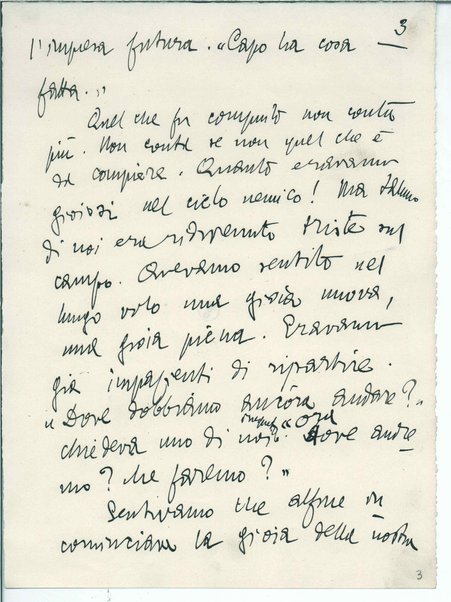 3
l'impresa futura. «Capo ha cosa
fatta.»
Quel che fu compiuto non conta
più. Non conta se non quel che è
da compiere. Quanto eravamo
gioiosi nel cielo nemico! Ma taluno
di noi era ridivenuto triste sul
campo. Avevamo sentito nel
lungo volo una gioia nuova,
una gioia piena. Eravamo
già impazienti di ripartire.
«Dove dobbiamo ancóra andare?»
chiedeva uno di noi. «Ora dove andre
mo? che faremo?»
Sentivamo che alfine in
cominciava la gioia della nostra
3